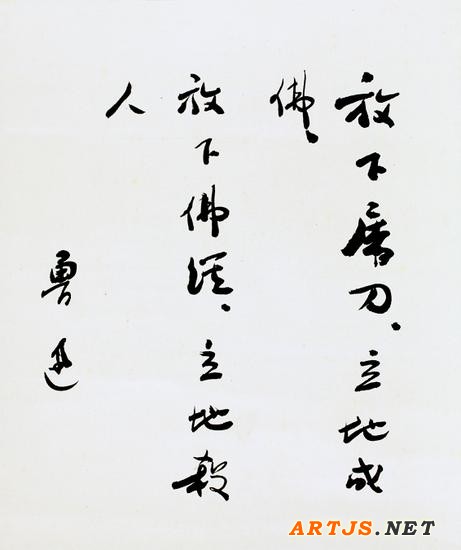 放下屠刀、立地成
佛、
放下佛経、立地殺
人
魯迅
ARTJS.NET